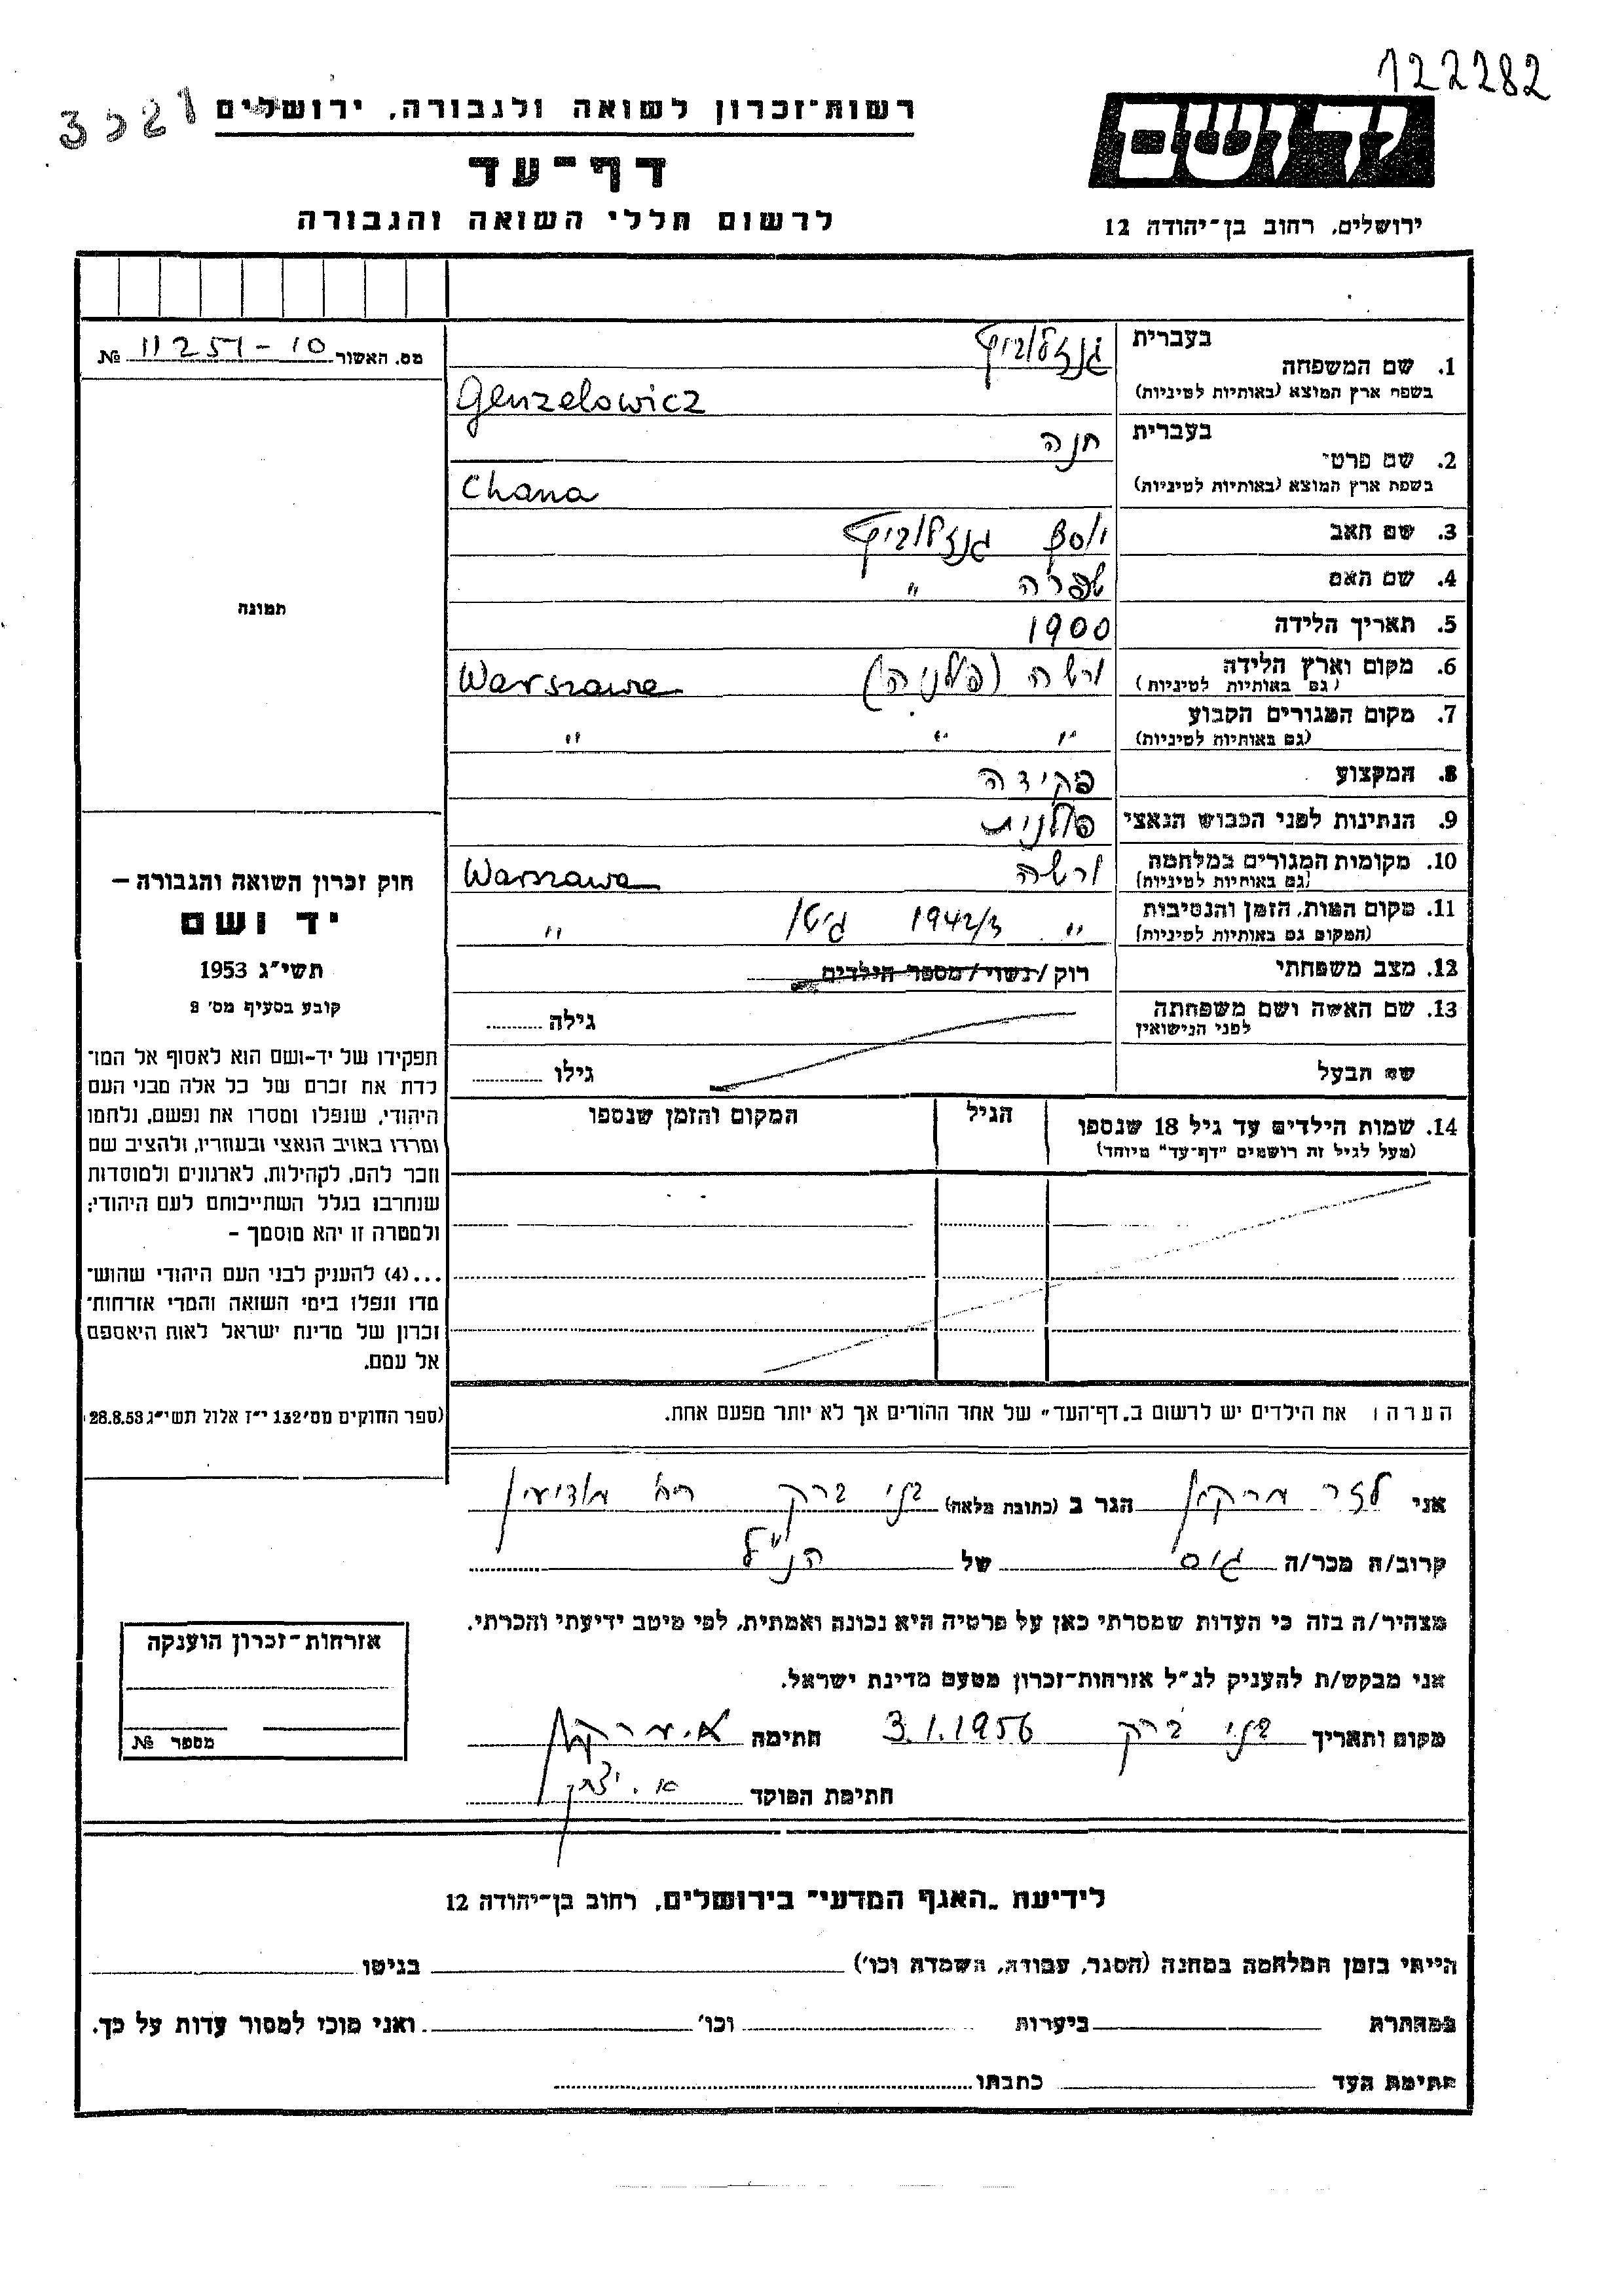 122282
3521
רשות־זכרון לשואה ולגבורה, ירושלים
דף־עד
לרשום חללי השואה והגבורה
יד ושם
ירושלים, רחוב בן־יהודה 12
מס. האשור 10 - 11251 №
תמונה
חוק זכרון השואה והגבורה –
יד ושם
תשי״ג 1953
קובע בסעיף מס׳ 2
תפקידו של יד-ושם הוא לאסוף אל המו־
לדת את זכרם של כל אלה מבני העם
היהודי, שנפלו ומסרו את נפשם, נלחמו
ומרדו באויב הנאצי ובעוזריו, ולהציב שם
וזכר להם, לקהילות, לארגונים ולמוסדות
שנחרבו בגלל השתייכותם לעם היהודי;
ולמטרה זו יהא מוסמך –
...(4) להעניק לבני העם היהודי שהוש־
מדו ונפלו בימי השואה והמרי אזרחות־
זכרון של מדינת ישראל לאות היאספם
אל עמם.
(ספר החוקים מס׳ 132 י״ז אלול תשי״ג 28.8.53)
בעברית גנזלוביץ
1. שם המשפחה
בשפת ארץ המוצא (באותיות לטיניות) Genzelowicz
בעברית חנה
2. שם פרטי
בשפת ארץ המוצא (באותיות לטיניות) Chana
3. שם האב יוסף גנזלוביץ
4. שם האם שפרה ״
5. תאריך הלידה 1900
6. מקום וארץ הלידה ורשה (פולניה) Warszawa
(גם באותיות לטיניות)
7. מקום המגורים הקבוע ״ ״ ״
(גם באותיות לטיניות)
8. המקצוע פקידה
9. הנתינות לפני הכבוש הנאצי פולנית
10. מקומות המגורים במלחמה ורשה Warszawa
(גם באותיות לטיניות)
11. מקום המות, הזמן והנסיבות ״ 1942/3 גיטו ״
(המקום גם באותיות לטיניות)
12. מצב משפחתי רוק/נשוי/מספר הילדים
13. שם האשה ושם משפחתה גילה
לפני הנישואין
שם הבעל גילו
14. שמות הילדים עד גיל 18 שנספו הגיל המקום והזמן שנספו
(מעל לגיל זה רושמים "דף־עד" מיוחד)
הערה: את הילדים יש לרשום ב„דף־העד" של אחד ההורים אך לא יותר מפעם אחת.
אני לזר מרקמן הגר ב (כתובת מלאה) בני ברק רח מודיעין
קרוב/ה מכר/ה גיס של הנ״ל
מצהיר/ה בזה כי העדות שמסרתי כאן על פרטיה היא נכונה ואמתית, לפי מיטב ידיעתי והכרתי.
אני מבקש/ת להעניק לנ״ל אזרחות־זכרון מטעם מדינת ישראל.
מקום ותאריך בני ברק 3.1.1956 חתימה
חתימת הפוקד א. יצחק
אזרחות־זכרון הוענקה
מספר №
לידיעת „האגף המדעי" בירושלים, רחוב בן־יהודה 12
הייתי בזמן המלחמה במחנה (הסגר, עבודה, השמדה וכו׳) בגיטו
במחתרת ביערות וכו׳ ואני מוכז למסור עדות על כך.
חתימת העד כתבתו